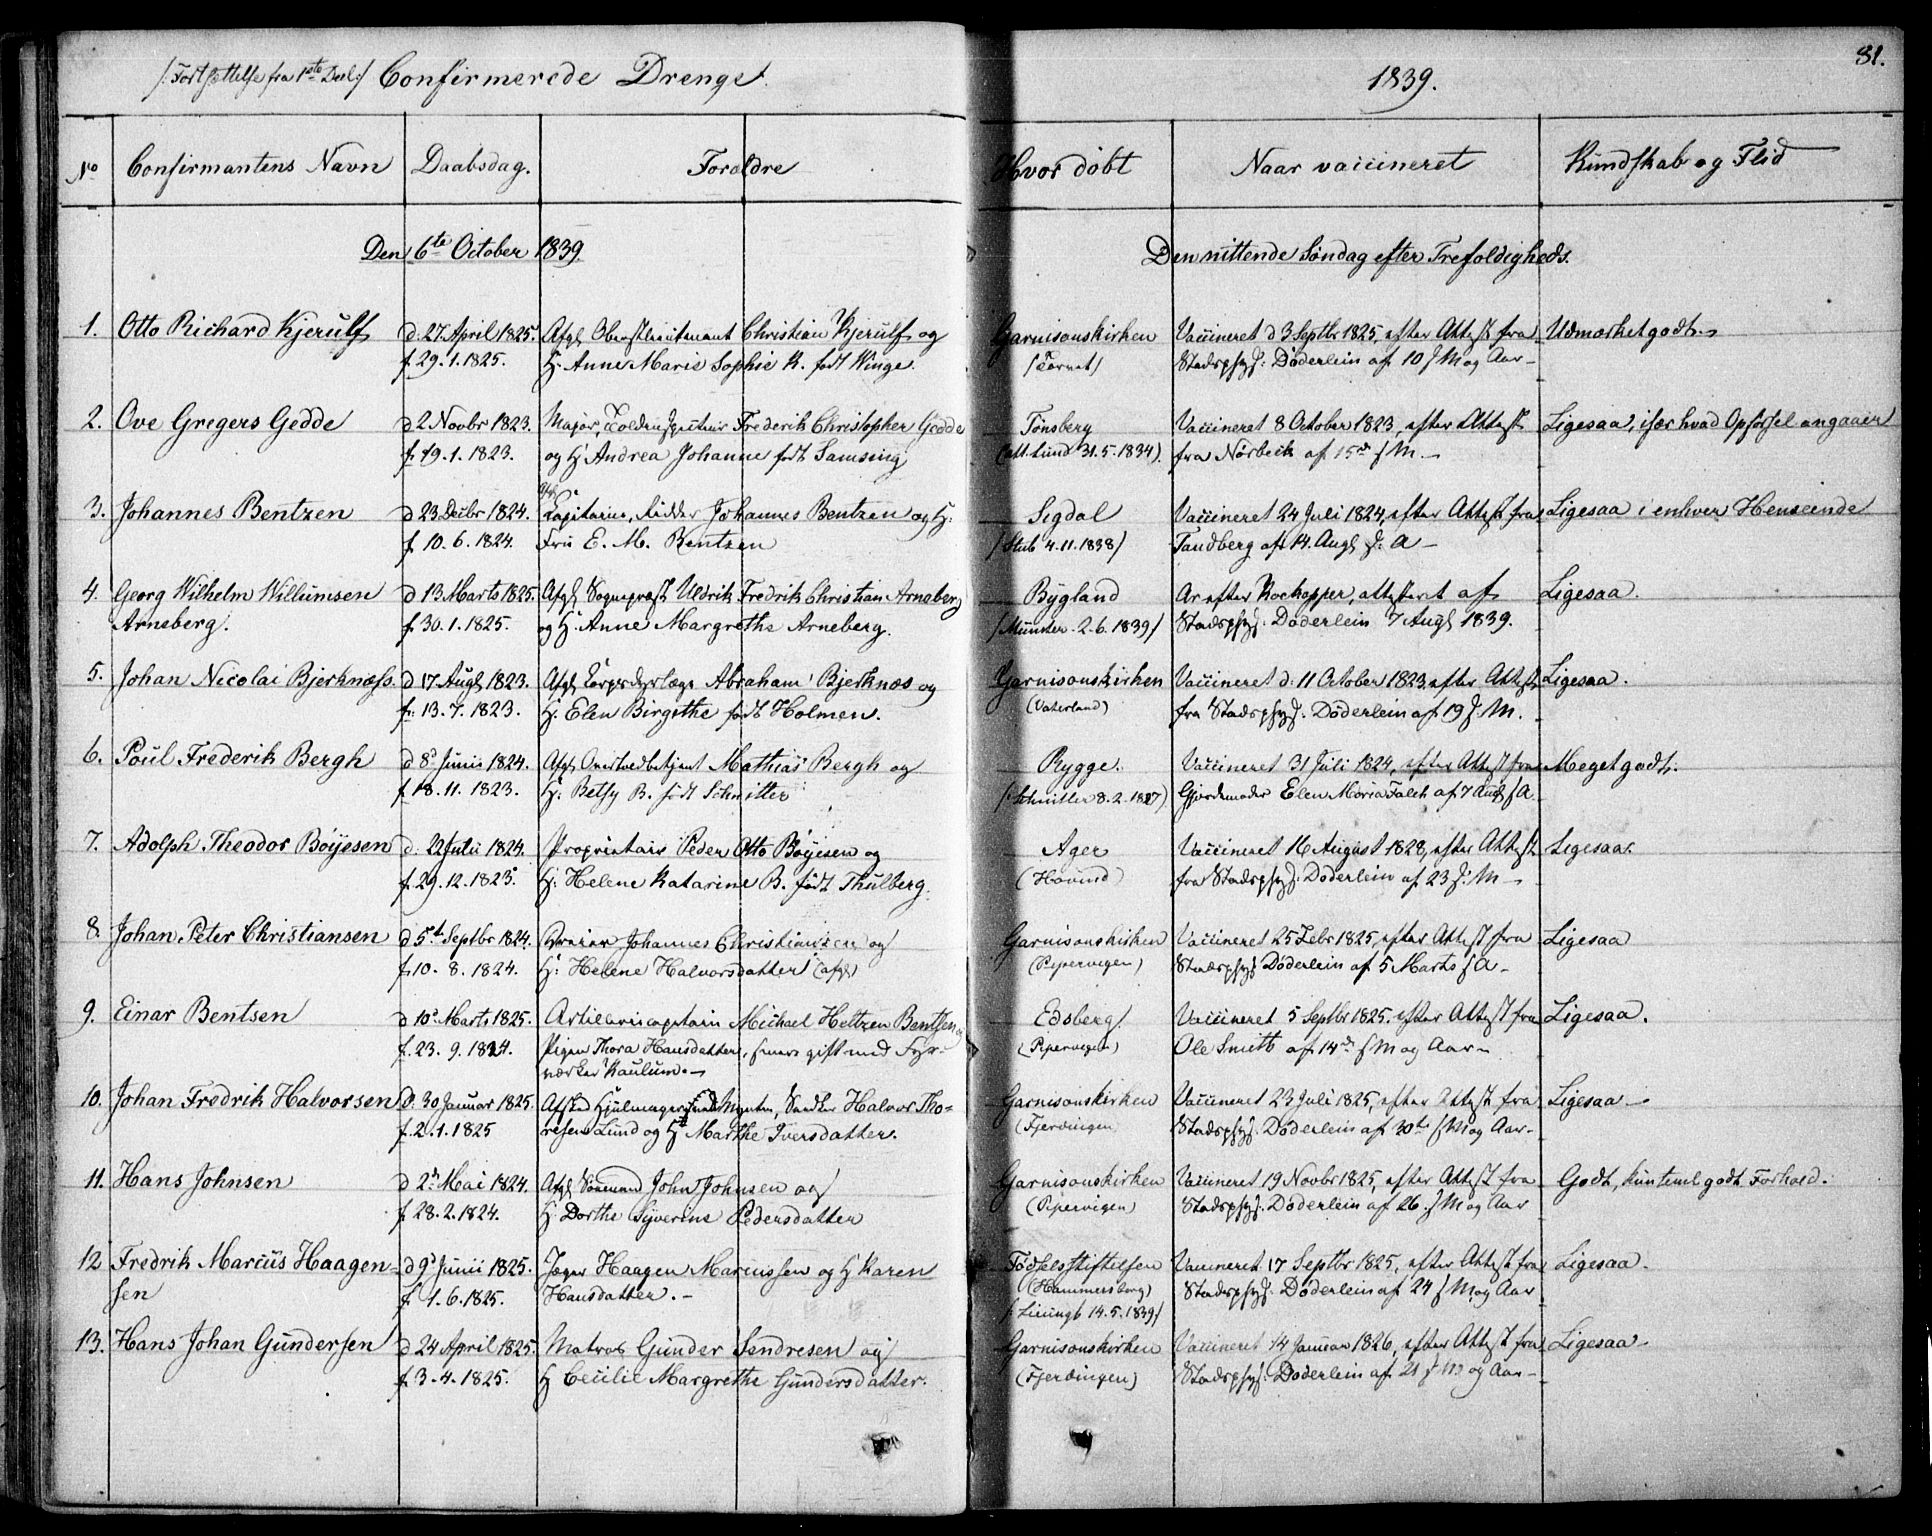 /: Fortsættelse fra 1ste Deel :/ Confirmerede Drenge. 1839. 81.
No Confirmantens Navn Daabsdag. Forældre Hvor døbt Naar vaccineret Kundskab og Flid
Den 6te October 1839. Den nittende Søndag efter Trefoldigheds.
1. Otto Richard Kjerulf d. 27. April 1825. Afg. Oberstlieutenant Christian Kjerulf og Garnisonskirken Vaccineret d 3 Septbr 1825, efter Attest fra Udmærket godt.
f. 29. 1. 1825. H: Anne Marie Sophie K. født Winge. Stadsphys: Døderlein af 10 s M og Aar
2. Ove Gregers Gedde d 2 Novbr 1823. Major, Frederik Christopher Gedde Tønsberg Vaccineret 8 October 1823, efter Attest Ligesaa, især hvad Opførsel angaaer
f. 19. 1. 1823. og H Andrea Johanne født Samsing (att. Lund 31. 5. 1834). fra Nørbech af 15de s M.
3. Johannes Bentzen d 23 Decbr 1824. Capitaine, Ridder Johannes Bentzen og H: Sigdal Vaccineret 24 Juli 1824, efter Attest fra Ligesaa i enhver Henseende
f. 10. 6. 1824. Fru E. M. Bentzen /Stub 4. 11. 1838/ Tandberg af 14. Aug s: A
4. Georg Wilhelm Willumsen d 13 Marts 1825. Afg Sognepræst Uldrik Fredrik Christian Arneberg Bygland Ar efter Kokopper, attesteret af Ligesaa.
Arneberg. f. 30. 1. 1825. og H. Anne Margrethe Arneberg. /Munster. 2. 6. 1839/ Stadsphys: Døderlein 7 Aug 1839.
5. Johan Nicolai Bjerknæss. d 17 Aug 1823. Afg Abraham Bjerknæs og Garnisonskirken Vaccineret d: 11 October 1823 efter Attest Ligesaa.
f. 13. 7. 1823. H. Elen Birgithe født Holmen. (Vaterland) fra Stadsphys: Døderlein af 19 s: M.
6. Poul Frederik Bergh d 8d Junii 1824. Afg. Mathias Bergh og Rygge. Vaccineret 31 Juli 1824, efter Attest fra Meget godt.
f. 18. 11. 1823. H: Betsy B. født Schnitter Gjordemoder Elen Maria Falch af 7 Aug s A
7. Adolph Theodor Bøyesen d: 22 Juli 1824. Proprietair Peder Otto Bøyesen og Ager Vaccineret 16 August 1828, efter Attest Ligesaa.
f. 29. 12. 1823. H: Helene Katarine B. født Thulberg. (Hovind) fra Stadsphys: Døderlein af 23 s: M
8. Johan Peter Christiansen d 5te Septbr 1824. Johannes Christiansen og Garnisonskirken Vaccineret 25 Febr 1825, efter Attest fra Ligesaa
f. 10. 8. 1824. H: Helene Halvorsdatter (afg) (Pipervigen) Stadsphys Døderlein af 5 Marts s A
9. Einar Bentsen d 10d Marts 1825. Artillericapitain Michael Heltzen Bentsen og Edsberg Vaccineret 5 Septbr 1825. efter Attest fra Ligesaa.
f. 23. 9. 1824. Pigen Thora Hansdatter, senere gift med Fyr- (Pipervigen) Ole Smith af 14de s M og Aar
værker Kaulum.
10. Johan Fredrik Halvorsen d. 30 Januar 1825. Halvor Tho- Garnisonskirken Vaccineret 23 Juli 1825, efter Attest fra Ligesaa
f. 2. 1. 1825 resen Lund og H Marthe Iversdatter. (Fjerdingen) Stadsphys: Døderlein af 30te s M og Aar
11. Hans Johnsen d 2d Mai 1824. Afg John Johnsen og Garnisonskirken Vaccineret 19 Novbr 1825, efter Attest fra Godt, kun teml. godt Forhold.
f. 28. 2. 1824. H Dorthe Syverine Pedersdatter (Pipervigen) Stadsphys: Døderlein af 26. s M og Aar
12 Fredrik Marcus Haagen- d 9d Junii 1825. Jæger Haagen Marcussen og H Karen Fødselsstiftelsen Vaccineret 17 Septbr 1825, efter Attest fra Ligesaa.
sen f. 1. 6. 1825. Hansdatter. (Hammersborg) Stadsphys: Døderlein af 24 s M og Aar
13. Hans Johan Gundersen d 24 April 1825. Matros Gunder Sendresen og Garnisonskirken Vaccineret 14 Januar 1826, efter Attest fra Ligesaa
f. 3. 4. 1825. H Cecilie Margrethe Gundersdatter. (Fjerdingen) Stadsphys: Døderlein af 21 s M og Aar